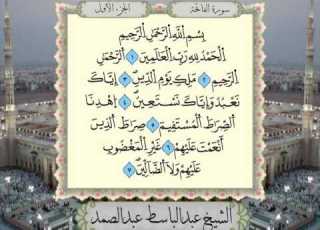 سورة الفاتحة
الجزء الأول
بِسْمِ اللَّهِ الرَّحْمَٰنِ الرَّحِيمِ
الْحَمْدُ لِلَّهِ رَبِّ الْعَالَمِينَ ١ الرَّحْمَٰنِ
الرَّحِيمِ ٢ مَلِكِ يَوْمِ الدِّينِ ٣ إِيَّاكَ
نَعْبُدُ وَإِيَّاكَ نَسْتَعِينُ ٤ اهْدِنَا
الصِّرَاطَ الْمُسْتَقِيمَ ٥ صِرَاطَ الَّذِينَ
أَنْعَمْتَ عَلَيْهِمْ ٦ غَيْرِ الْمَغْضُوبِ
عَلَيْهِمْ وَلَا الضَّالِّينَ ٧
الشيخ عبدالباسط عبدالصمد